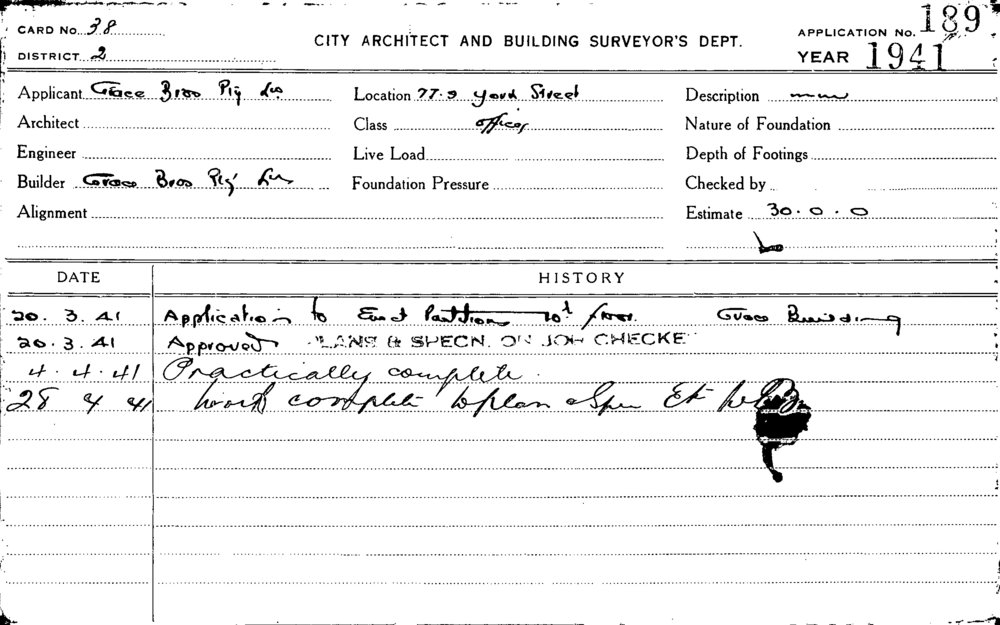 CARD No. 38
DISTRICT 2
CITY ARCHITECT AND BUILDING SURVEYOR'S DEPT.
APPLICATION No. 189
YEAR 1941
Applicant Grace Bros Pty Ltd
Location 77.9 York Street
Description
Architect
Class Offices
Nature of Foundation
Engineer
Live Load
Depth of Footings
Builder Grace Bros Pty Ltd
Foundation Pressure
Checked by
Alignment
Estimate 30.0.0
DATE HISTORY
20.3.41 Application to Erect Partitions 10t floor. Grace Building
20.3.41 Approved PLANS & SPECN. ON JOB CHECKE
4.4.41 Practically complete.
28 4 41 Work complete to plan & Spec